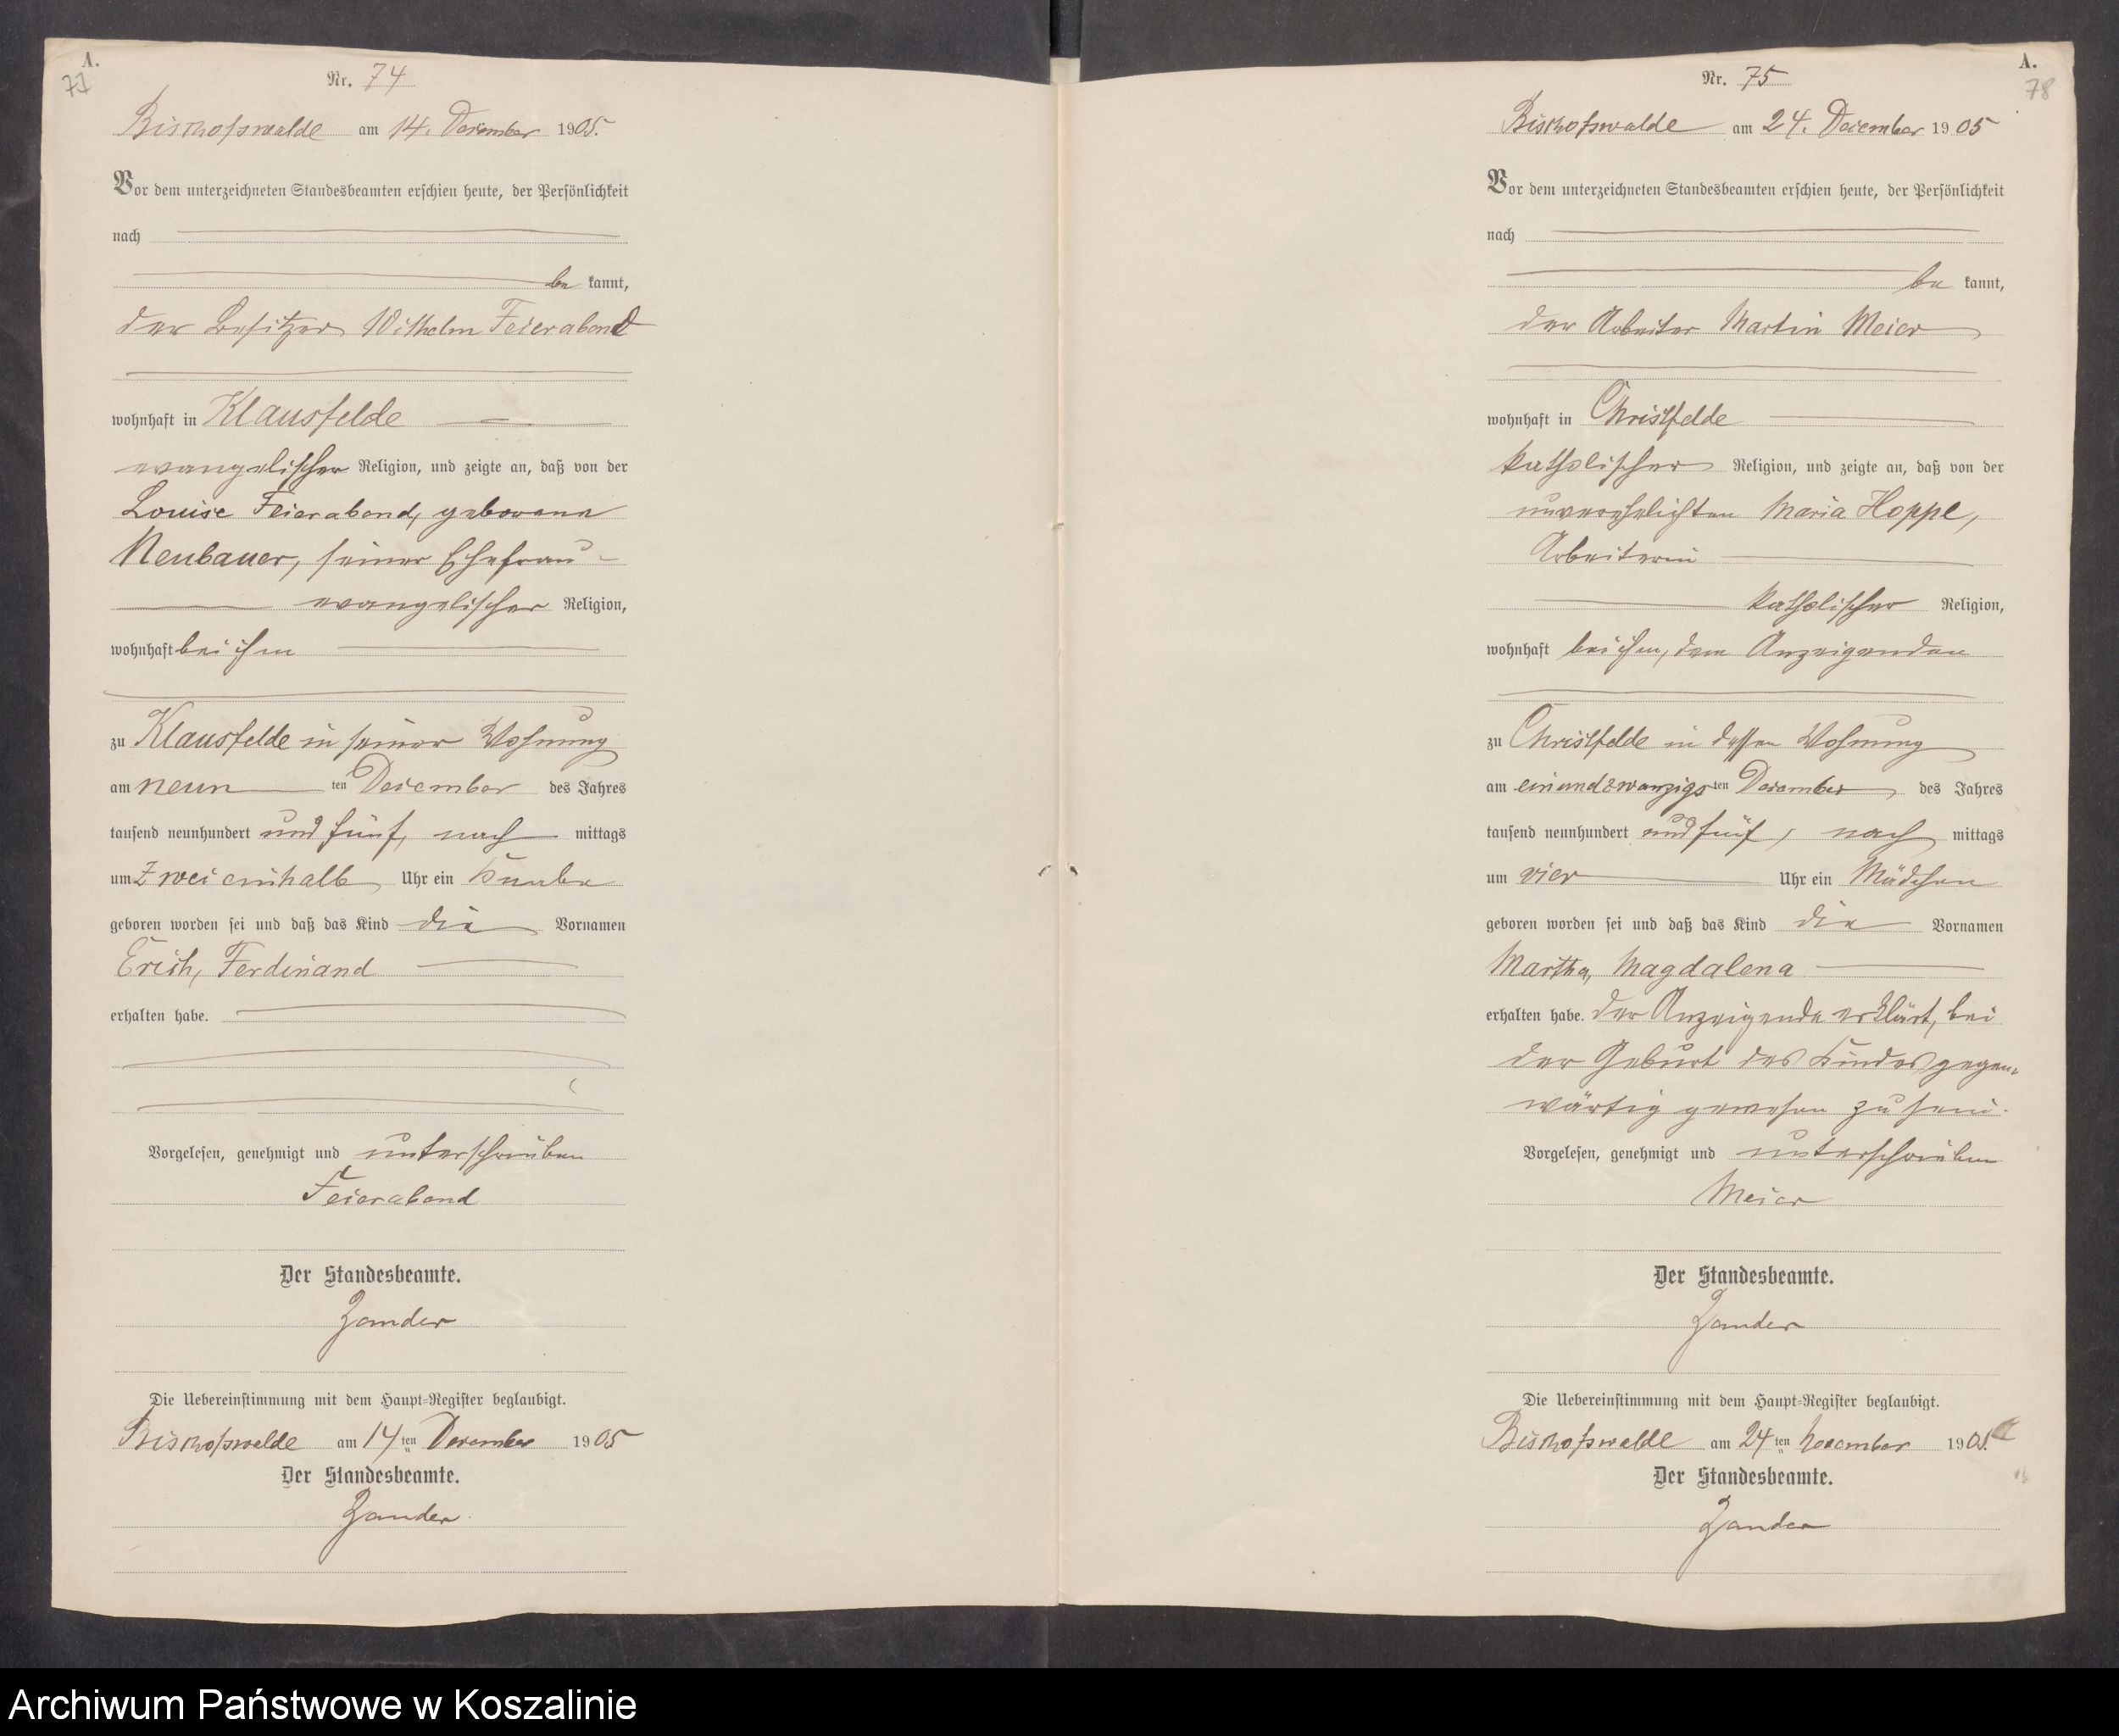 A.
77
Nr. 74
Bischofswalde am 14. Dezember 1905.
Vor dem unterzeichneten Standesbeamten erschien heute, der Persönlichkeit
nach
be kannt,
der Besitzer Wilhelm Feierabend
wohnhaft in Klausfelde
evangelischer Religion, und zeigte an, daß von der
Louise Feierabend, geborene
Neubauer, seiner Ehefrau
evangelischer Religion,
wohnhaft bei ihm
zu Klausfelde in seiner Wohnung
am neun ten Dezember des Jahres
tausend neunhundert und fünf, nach mittags
um zwei einhalb Uhr ein Knabe
geboren worden sei und daß das Kind die Vornamen
Erich, Ferdinand
erhalten habe.
Vorgelesen, genehmigt und unterschrieben
Feierabend
Der Standesbeamte.
Zander
Die Uebereinstimmung mit dem Haupt-Register beglaubigt.
Bischofswalde am 14 ten Dezember 1905
Der Standesbeamte.
Zander
A.
78
Nr. 75
Bischofswalde am 24. Dezember 1905
Vor dem unterzeichneten Standesbeamten erschien heute, der Persönlichkeit
nach
be kannt,
der Arbeiter Martin Meier
wohnhaft in Christfelde
katholischer Religion, und zeigte an, daß von der
unverehelichten Maria Hoppe,
Arbeiterin
katholischer Religion,
wohnhaft bei ihm, dem Anzeigenden
zu Christfelde in dessen Wohnung
am einundzwanzigs ten Dezember des Jahres
tausend neunhundert und fünf, nach mittags
um vier Uhr ein Mädchen
geboren worden sei und daß das Kind die Vornamen
Martha, Magdalena
erhalten habe. Der Anzeigende erklärt, bei
der Geburt des Kindes gegen-
wärtig gewesen zu sein.
Vorgelesen, genehmigt und unterschrieben
Meier
Der Standesbeamte.
Zander
Die Uebereinstimmung mit dem Haupt-Register beglaubigt.
Bischofswalde am 24 ten November 1905.
Der Standesbeamte.
Zander
Archiwum Państwowe w Koszalinie